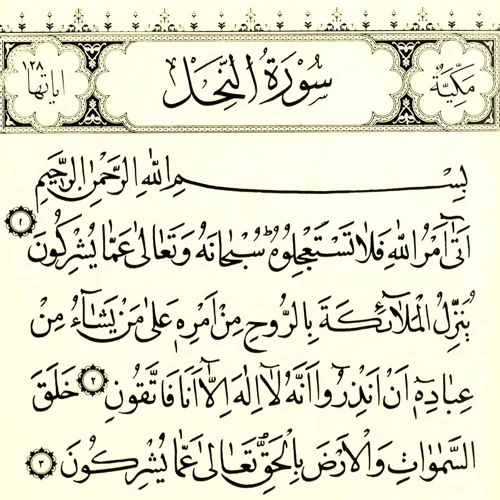 مكية
سورة النحل
اياتها ١٢٨
بسم الله الرحمن الرحيم
اَتٰىٓ اَمْرُ اللّٰهِ فَلَا تَسْتَعْجِلُوهُۜ سُبْحَانَهُ وَتَعَالٰى عَمَّا يُشْرِكُونَ ١
يُنَزِّلُ الْمَلٰٓئِكَةَ بِالرُّوحِ مِنْ اَمْرِهِ عَلٰى مَنْ يَشَٓاءُ مِنْ
عِبَادِهِٓ اَنْ اَنْذِرُٓوا اَنَّهُ لَٓا اِلٰهَ اِلَّٓا اَنَا فَاتَّقُونِ ٢ خَلَقَ
السَّمٰوَاتِ وَالْاَرْضَ بِالْحَقِّۜ تَعَالٰى عَمَّا يُشْرِكُونَ ٣